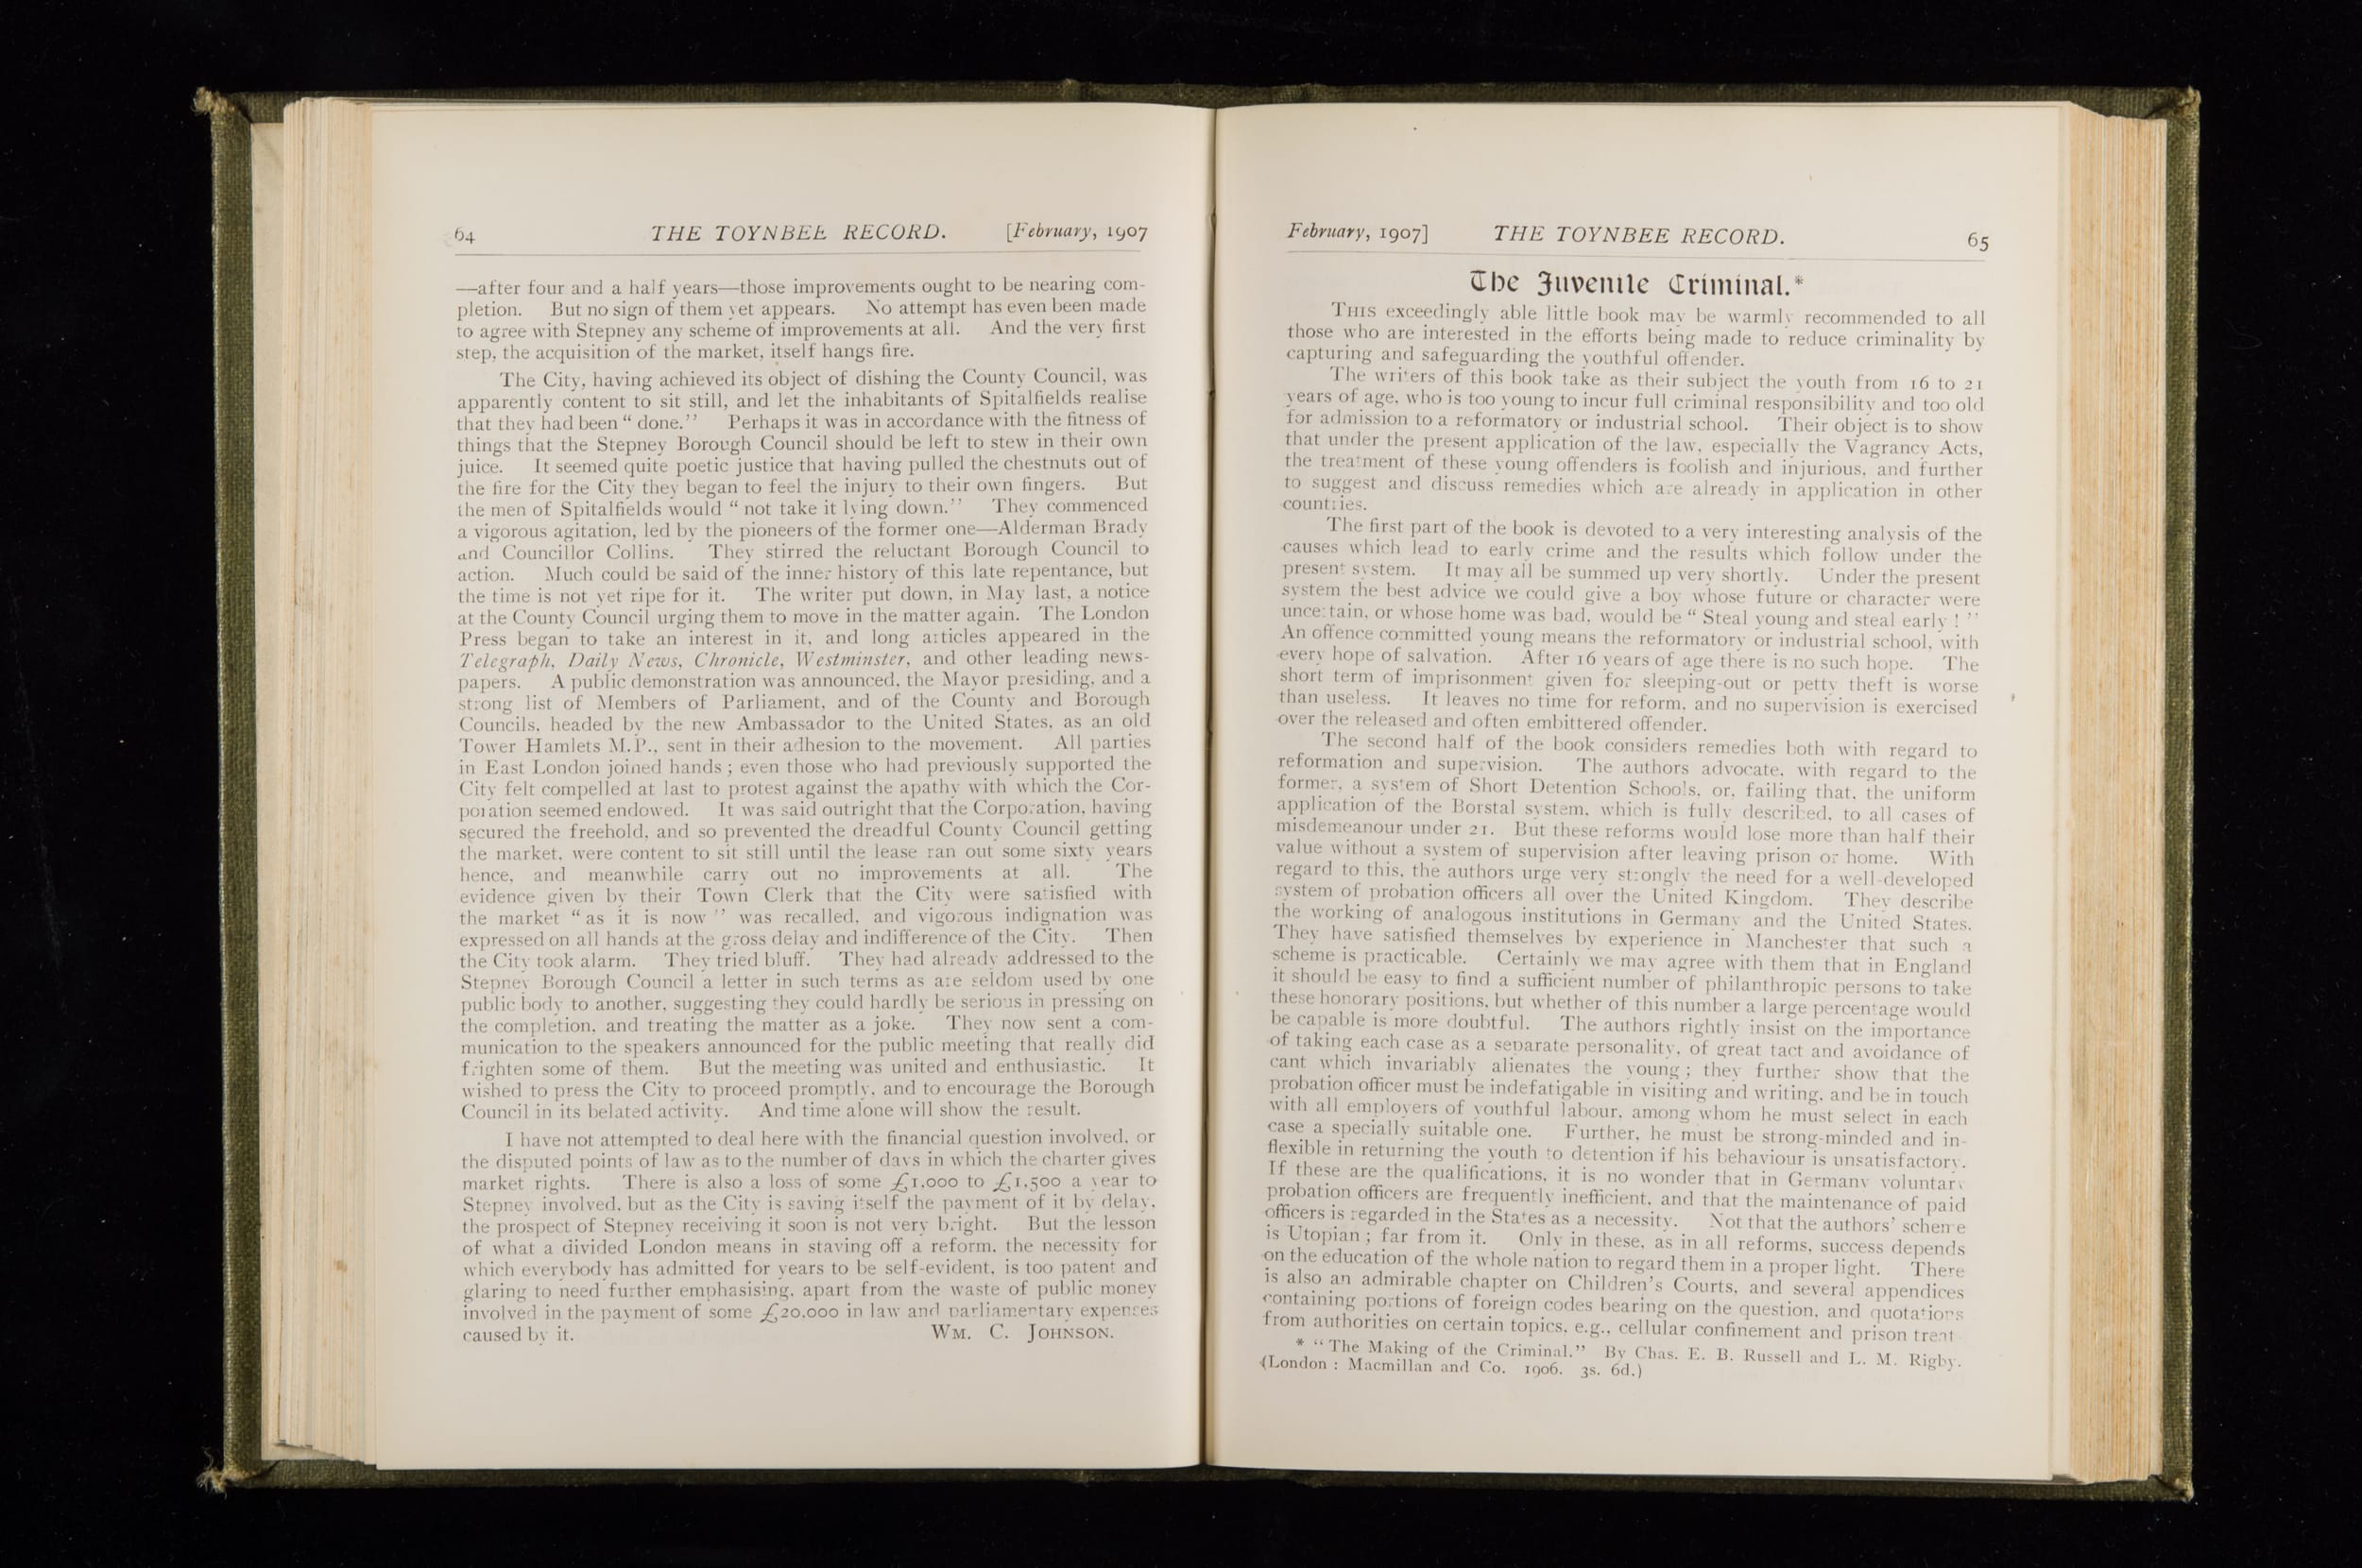 64 THE TOYNBEE RECORD. [February, 1907
—after four and a half years—those improvements ought to be nearing com-
pletion. But no sign of them yet appears. No attempt has even been made
to agree with Stepney any scheme of improvements at all. And the very first
step, the acquisition of the market, itself hangs fire.
The City, having achieved its object of dishing the County Council, was
apparently content to sit still, and let the inhabitants of Spitalfields realise
that they had been “ done.’’ Perhaps it was in accordance with the fitness of
things that the Stepney Borough Council should be left to stew in their own
juice. It seemed quite poetic justice that having pulled the chestnuts out of
the fire for the City they began to feel the injury to their own fingers. But
the men of Spitalfields would “ not take it lying down.’’ They commenced
a vigorous agitation, led by the pioneers of the former one—Alderman Brady
and Councillor Collins. They stirred the reluctant Borough Council to
action. Much could be said of the inner history of this late repentance, but
the time is not yet ripe for it. The writer put down, in May last, a notice
at the County Council urging them to move in the matter again. The London
Press began to take an interest in it, and long articles appeared in the
Telegraph, Daily News, Chronicle, Westminster, and other leading news-
papers. A public demonstration was announced, the Mayor presiding, and a
strong list of Members of Parliament, and of the County and Borough
Councils, headed by the new Ambassador to the United States, as an old
Tower Hamlets M.P., sent in their adhesion to the movement. All parties
in East London joined hands ; even those who had previously supported the
City felt compelled at last to protest against the apathy with which the Cor-
poration seemed endowed. It was said outright that the Corporation, having
secured the freehold, and so prevented the dreadful County Council getting
the market, were content to sit still until the lease ran out some sixty years
hence, and meanwhile carry out no improvements at all. The
evidence given by their Town Clerk that the City were satisfied with
the market “ as it is now ’’ was recalled, and vigorous indignation was
expressed on all hands at the gross delay and indifference of the City. Then
the City took alarm. They tried bluff. They had already addressed to the
Stepney Borough Council a letter in such terms as are seldom used by one
public body to another, suggesting they could hardly be serious in pressing on
the completion, and treating the matter as a joke. They now sent a com-
munication to the speakers announced for the public meeting that really did
frighten some of them. But the meeting was united and enthusiastic. It
wished to press the City to proceed promptly, and to encourage the Borough
Council in its belated activity. And time alone will show the result.
I have not attempted to deal here with the financial question involved, or
the disputed points of law as to the number of days in which the charter gives
market rights. There is also a loss of some £1,000 to £1,500 a year to
Stepney involved, but as the City is saving itself the payment of it by delay,
the prospect of Stepney receiving it soon is not very bright. But the lesson
of what a divided London means in staving off a reform, the necessity for
which everybody has admitted for years to be self-evident, is too patent and
glaring to need further emphasising, apart from the waste of public money
involved in the payment of some £20,000 in law and parliamentary expenses
caused by it. WM. C. JOHNSON.
February, 1907] THE TOYNBEE RECORD. 65
The Juvenile Criminal.*
THIS exceedingly able little book may be warmly recommended to all
those who are interested in the efforts being made to reduce criminality by
capturing and safeguarding the youthful offender.
The writers of this book take as their subject the youth from 16 to 21
years of age, who is too young to incur full criminal responsibility and too old
for admission to a reformatory or industrial school. Their object is to show
that under the present application of the law, especially the Vagrancy Acts,
the treatment of these young offenders is foolish and injurious, and further
to suggest and discuss remedies which are already in application in other
countries.
The first part of the book is devoted to a very interesting analysis of the
causes which lead to early crime and the results which follow under the
present system. It may all be summed up very shortly. Under the present
system the best advice we could give a boy whose future or character were
uncertain, or whose home was bad, would be “ Steal young and steal early ! ’’
An offence committed young means the reformatory or industrial school, with
every hope of salvation. After 16 years of age there is no such hope. The
short term of imprisonment given for sleeping-out or petty theft is worse
than useless. It leaves no time for reform, and no supervision is exercised
over the released and often embittered offender.
The second half of the book considers remedies both with regard to
reformation and supervision. The authors advocate, with regard to the
former, a system of Short Detention Schools, or, failing that, the uniform
application of the Borstal system, which is fully described, to all cases of
misdemeanour under 21. But these reforms would lose more than half their
value without a system of supervision after leaving prison or home. With
regard to this, the authors urge very strongly the need for a well-developed
system of probation officers all over the United Kingdom. They describe
the working of analogous institutions in Germany and the United States.
They have satisfied themselves by experience in Manchester that such a
scheme is practicable. Certainly we may agree with them that in England
it should be easy to find a sufficient number of philanthropic persons to take
these honorary positions, but whether of this number a large percentage would
be capable is more doubtful. The authors rightly insist on the importance
of taking each case as a separate personality, of great tact and avoidance of
cant which invariably alienates the young ; they further show that the
probation officer must be indefatigable in visiting and writing, and be in touch
with all employers of youthful labour, among whom he must select in each
case a specially suitable one. Further, he must be strong-minded and in-
flexible in returning the youth to detention if his behaviour is unsatisfactory.
If these are the qualifications, it is no wonder that in Germany voluntary
probation officers are frequently inefficient, and that the maintenance of paid
officers is regarded in the States as a necessity. Not that the authors’ scheme
is Utopian ; far from it. Only in these, as in all reforms, success depends
on the education of the whole nation to regard them in a proper light. There
is also an admirable chapter on Children’s Courts, and several appendices
containing portions of foreign codes bearing on the question, and quotations
from authorities on certain topics, e.g., cellular confinement and prison treat-
* “ The Making of the Criminal.” By Chas. E. B. Russell and L. M. Rigby.
(London : Macmillan and Co. 1906. 3s. 6d.)